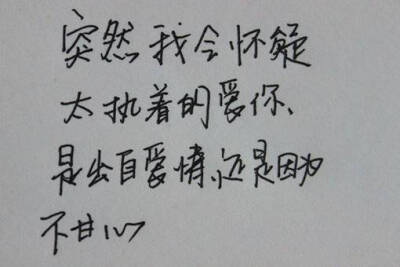 突然我会怀疑
太执着的爱你、
是出自爱情、还是因为
不甘心